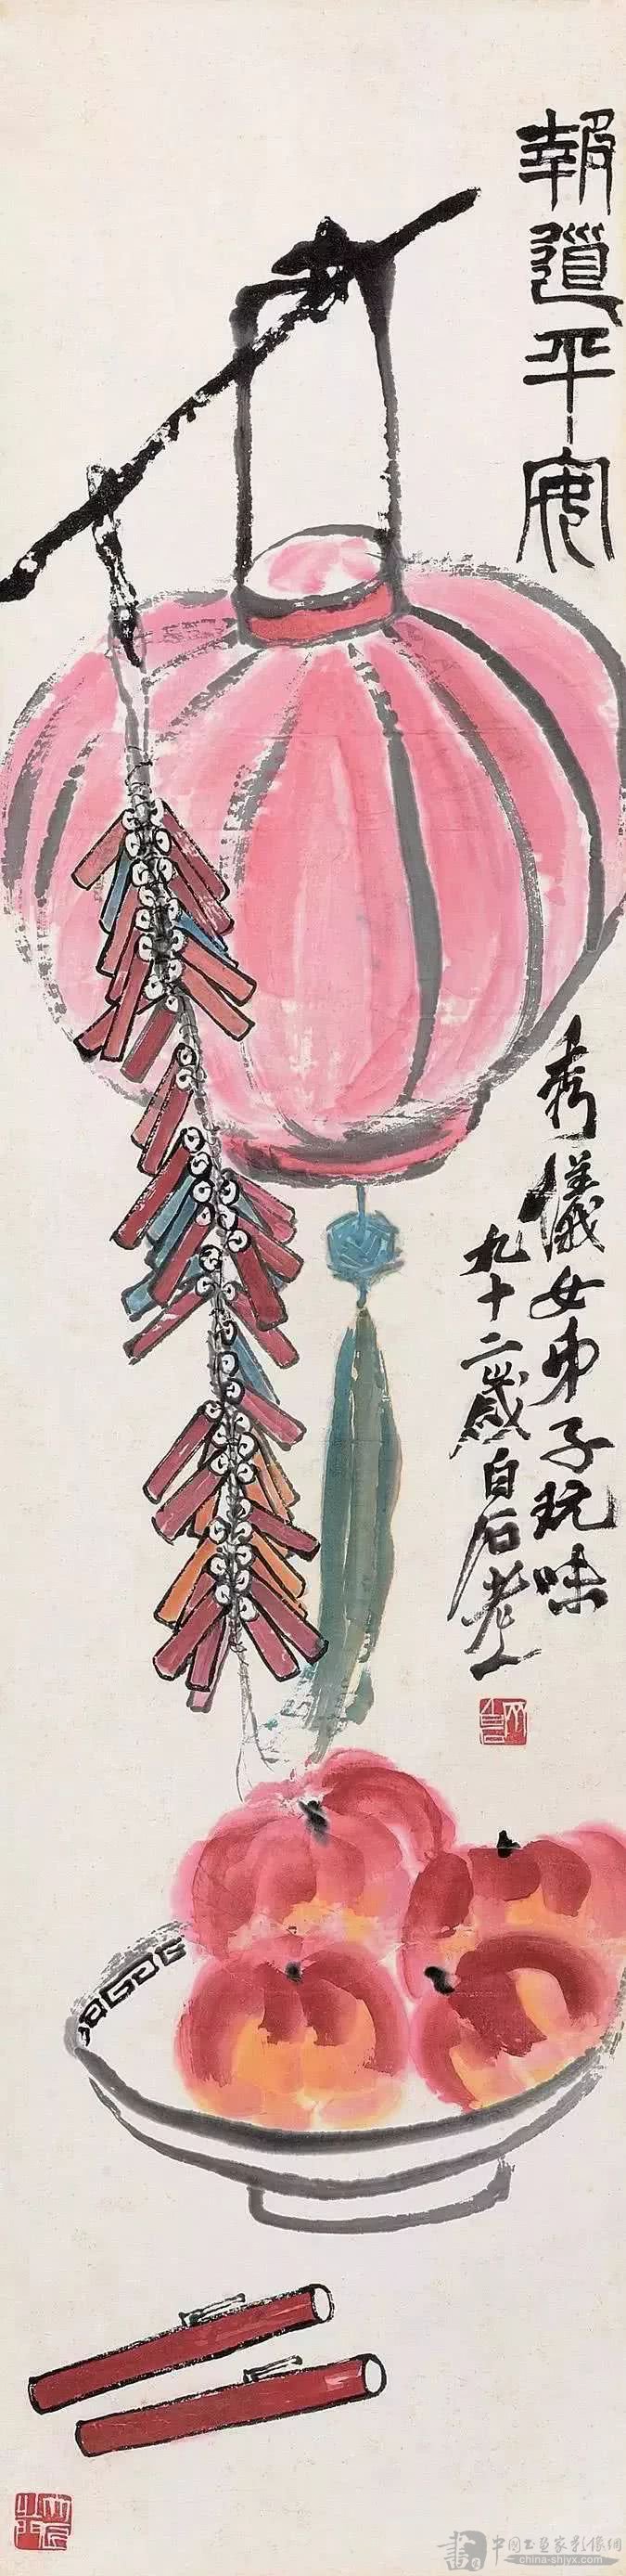 報道平安
秀儀女弟子玩味
九十二歲白石老人
中国书画家影像网
china-shjyx.com